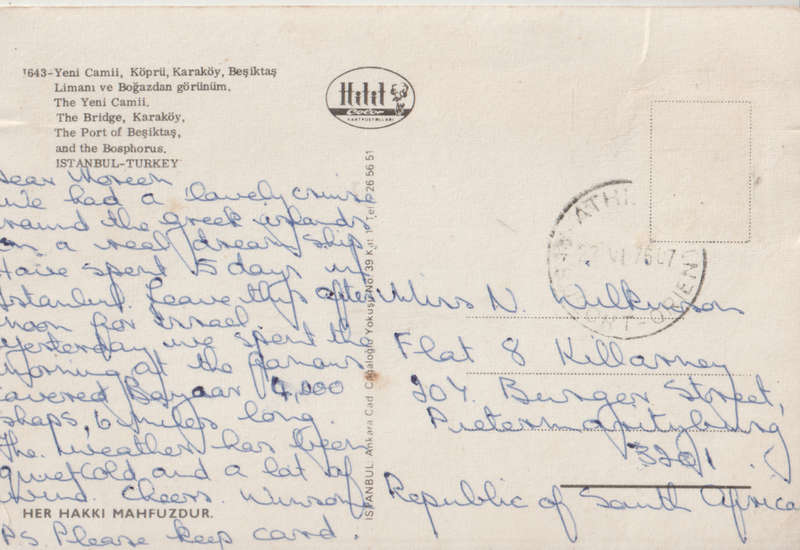 1643-Yeni Camii, Köprü, Karaköy, Beşiktaş
Limanı ve Boğazdan görünüm.
The Yeni Camii.
The Bridge, Karaköy,
The Port of Beşiktaş,
and the Bosphorus.
ISTANBUL-TURKEY
Dear Noreen
We had a lovely cruise
round the greek islands
on a real dream ship
Have spent 5 days in
Istanbul. Leave this after
noon for Israel.
Yesterday we spent the
morning at the famous
covered Bazaar 4,000
shops, 6 miles long.
The weather has been
quiet cold and a lot of
wind. Cheers. Winsome
PS. Please keep card.
HER HAKKI MAHFUZDUR.
Hitit
Color
KARTPOSTALLARI
ISTANBUL: Ankara Cad. Cağaloğlu Yokuşu No. 39 Kat 1 Tel 26 56 51
ATH
VI 75
ORT-ORIENT
Mrs N. Wilkinson
Flat 8 Killarney
204. Burger Street,
Pietermaritzburg
3201.
Republic of South Africa